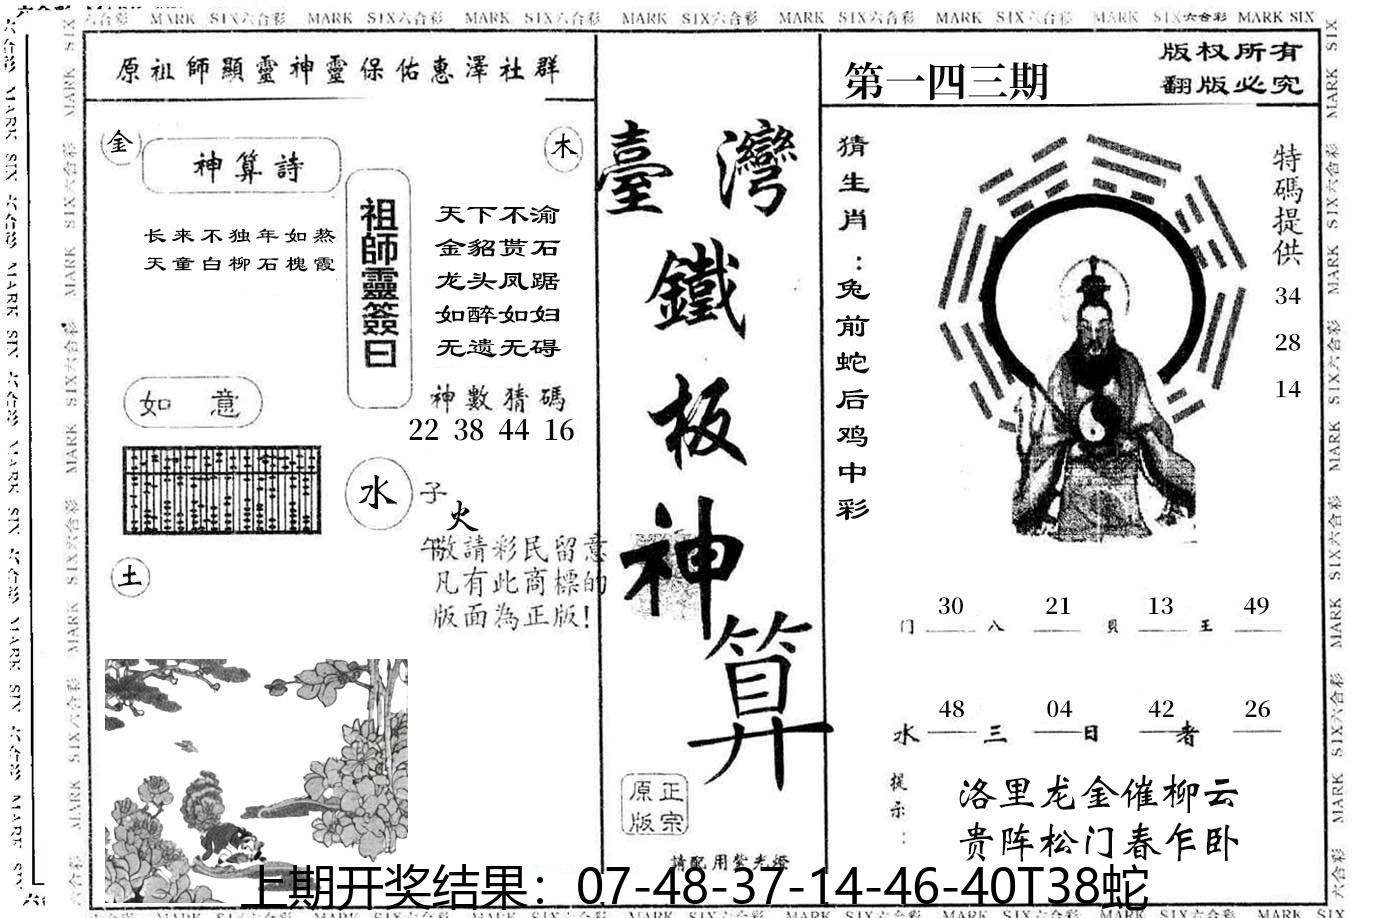 六合彩 MARK SIX六合彩 MARK SIX六合彩 MARK SIX六合彩 MARK SIX六合彩 MARK SIX六合彩 MARK SIX六合彩 MARK SIX六合彩 MARK SIX
原祖師顯靈神靈保佑惠澤社群
金
神算詩
木
长来不独年如蒸
天童白柳石槐霞
祖師靈簽曰
天下不渝
金貂贳石
龙头凤踞
如醉如妇
无遗无碍
神數猜碼
22 38 44 16
如 意
水
子
火
午
土
敬請彩民留意
凡有此商標的
版面為正版!
臺灣
鐵
板
神
算
原正
版宗
請配用紫光燈
第一四三期
版权所有
翻版必究
猜生肖:兔前蛇后鸡中彩
特碼提供
34
28
14
30 21 13 49
门 八 貝 王
48 04 42 26
水 三 日 者
提示:
洛里龙金催柳云
贵阵松门春乍卧
上期开奖结果：07-48-37-14-46-40T38蛇